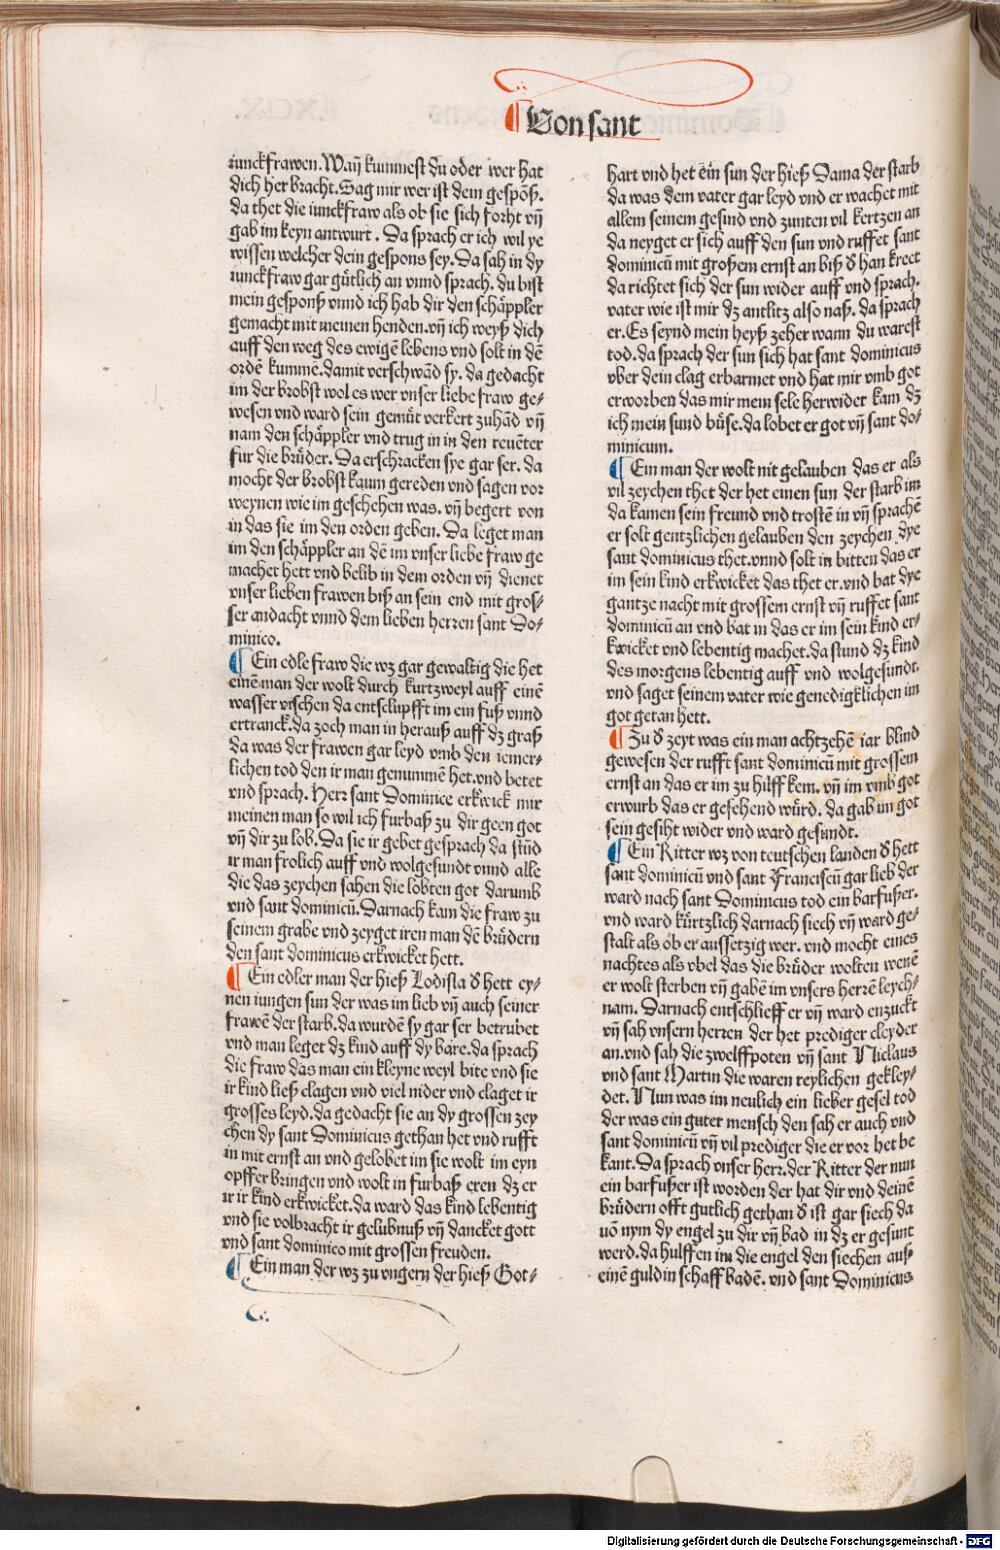 Von sant
iunckfrawen. Wañ kummest du oder wer hat
dich her bracht. Sag mir wer ist dein gespõß.
da thet die iunckfraw als ob sie sich forht vñ
gab im keyn antwurt. Da sprach er ich wil ye
wissen welcher dein gespons sey. Da sah in dy
iunckfraw gar gütlich an vnnd sprach. du bist
mein gesponß vnnd ich hab dir den schäppler
gemacht mit meinen henden. vñ ich weyß dich
auff den weg des ewigẽ lebens vnd solt in dẽ
ordẽ kummẽ. damit verschwãd sy. da gedacht
im der brobst wol es wer vnser liebe fraw ge-
wesen vnd ward sein gemüt verkert zuhãd vñ
nam den schäppler vnd trug in in den reuẽter
fur die brüder. Da erschracken sye gar ser. da
mocht der brobst kaum gereden vnd sagen vor
weynen wie im geschehen was. vñ begert von
in das sie im den orden geben. Da leget man
im den schäppler an dẽ im vnser liebe fraw ge
machet hett vnd belib in dem orden vñ dienet
vnser lieben frawen biß an sein end mit gros-
ser andacht vnnd dem lieben herren sant Do-
minico.
¶ Ein edle fraw die wz gar gewaltig die het
einẽ man der wolt durch kurtzweyl auff einẽ
wasser vischen da entschlupfft im ein fuß vnnd
ertranck. da zoch man in herauß auff dz graß
da was der frawen gar leyd vmb den iemer-
lichen tod den ir man genummẽ het. vnd betet
vnd sprach. Herr sant Dominice erkwick mir
meinen man so wil ich furbaß zu dir geen got
vñ dir zu lob. Da sie ir gebet gesprach da stũd
ir man frolich auff vnd wolgesundt vnnd alle
die das zeychen sahen die lobten got darumb
vnd sant dominicũ. Darnach kam die fraw zu
seinem grabe vnd zeyget iren man dẽ brüdern
den sant dominicus erkwicket hett.
¶ Ein edler man der hieß Lodisla ð hett ey-
nen iungen sun der was im lieb vñ auch seiner
frawẽ der starb. da wurdẽ sy gar ser betrübet
vnd man leget dz kind auff dy bare. da sprach
die fraw das man ein kleyne weyl bite vnd sie
ir kind ließ clagen vnd viel nider vnd claget ir
grosses leyd. da gedacht sie an dy grossen zey
chen dy sant Dominicus gethan het vnd rufft
in mit ernst an vnd gelobet im sie wolt im eyn
opffer bringen vnd wolt in furbaß eren dz er
ir ir kind erkwicket. da ward das kind lebentig
vnd sie volbracht ir gelübnuß vñ dancket gott
vnd sant dominico mit grossen freuden.
¶ Ein man der wz zu vngern der hieß Got-
hart vnd het ein sun der hieß Dama der starb
da was dem vater gar leyd vnd er wachet mit
allem seinem gesind vnd zunten vil kertzen an
da neyget er sich auff den sun vnd ruffet sant
dominicũ mit großem ernst an biß ð han kreet
da richtet sich der sun wider auff vnd sprach.
vater wie ist mir dz antlitz also naß. da sprach
er. Es seynd mein heyß zeher wann du warest
tod. da sprach der sun sich hat sant dominicus
vber dein clag erbarmet vnd hat mir vmb got
erworben das mir mein sele herwider kam dz
ich mein sund büse. da lobet er got vñ sant do-
minicum.
¶ Ein man der wolt nit gelauben das er als
vil zeychen thet der het einen sun der starb im
da kamen sein freund vnd trostẽ in vñ sprachẽ
er solt gentzlichen gelauben den zeychen dye
sant dominicus thet. vnnd solt in bitten das er
im sein kind erkwicket das thet er. vnd bat dye
gantze nacht mit grossem ernst vñ ruffet sant
dominicũ an vnd bat in das er im sein kind er-
kwicket vnd lebentig machet. da stund dz kind
des morgens lebentig auff vnd wolgesundt.
vnd saget seinem vater wie genedigklichen im
got getan hett.
¶ Zu ð zeyt was ein man achtzehẽ iar blind
gewesen der rufft sant dominicũ mit grossem
ernst an das er im zu hilff kem. vñ im vmb got
erwurb das er gesehend würd. da gab im got
sein gesiht wider vnd ward gesundt.
¶ Ein Ritter wz von teutschen landen ð hett
sant dominicũ vnd sant Franciscũ gar lieb der
ward nach sant Dominicus tod ein barfußer.
vnd ward kürtzlich darnach siech vñ ward ge-
stalt als ob er aussetzig wer. vnd mocht eines
nachtes als vbel das die brüder wolten wenẽ
er wolt sterben vñ gabẽ im vnsers herrẽ leych-
nam. Darnach entschlieff er vñ ward enzuckt
vñ sah vnsern herren der het prediger cleyder
an. vnd sah die zwelffpoten vñ sant Niclaus
vnd sant Martin die waren reylichen gekley-
det. Nun was im neulich ein lieber gesel tod
der was ein guter mensch den sah er auch vnd
sant dominicũ vñ vil prediger die er vor het be
kant. Da sprach vnser herr. der Ritter der nun
ein barfußer ist worden der hat dir vnd deinẽ
brüdern offt gutlich gethan ð ist gar siech da
uõ nym dy engel zu dir vñ bad in dz er gesunt
werd. da hulffen im die engel den siechen auß
einẽ guldin schaff badẽ. vnd sant Dominicus
Digitalisierung gefördert durch die Deutsche Forschungsgemeinschaft - DFG